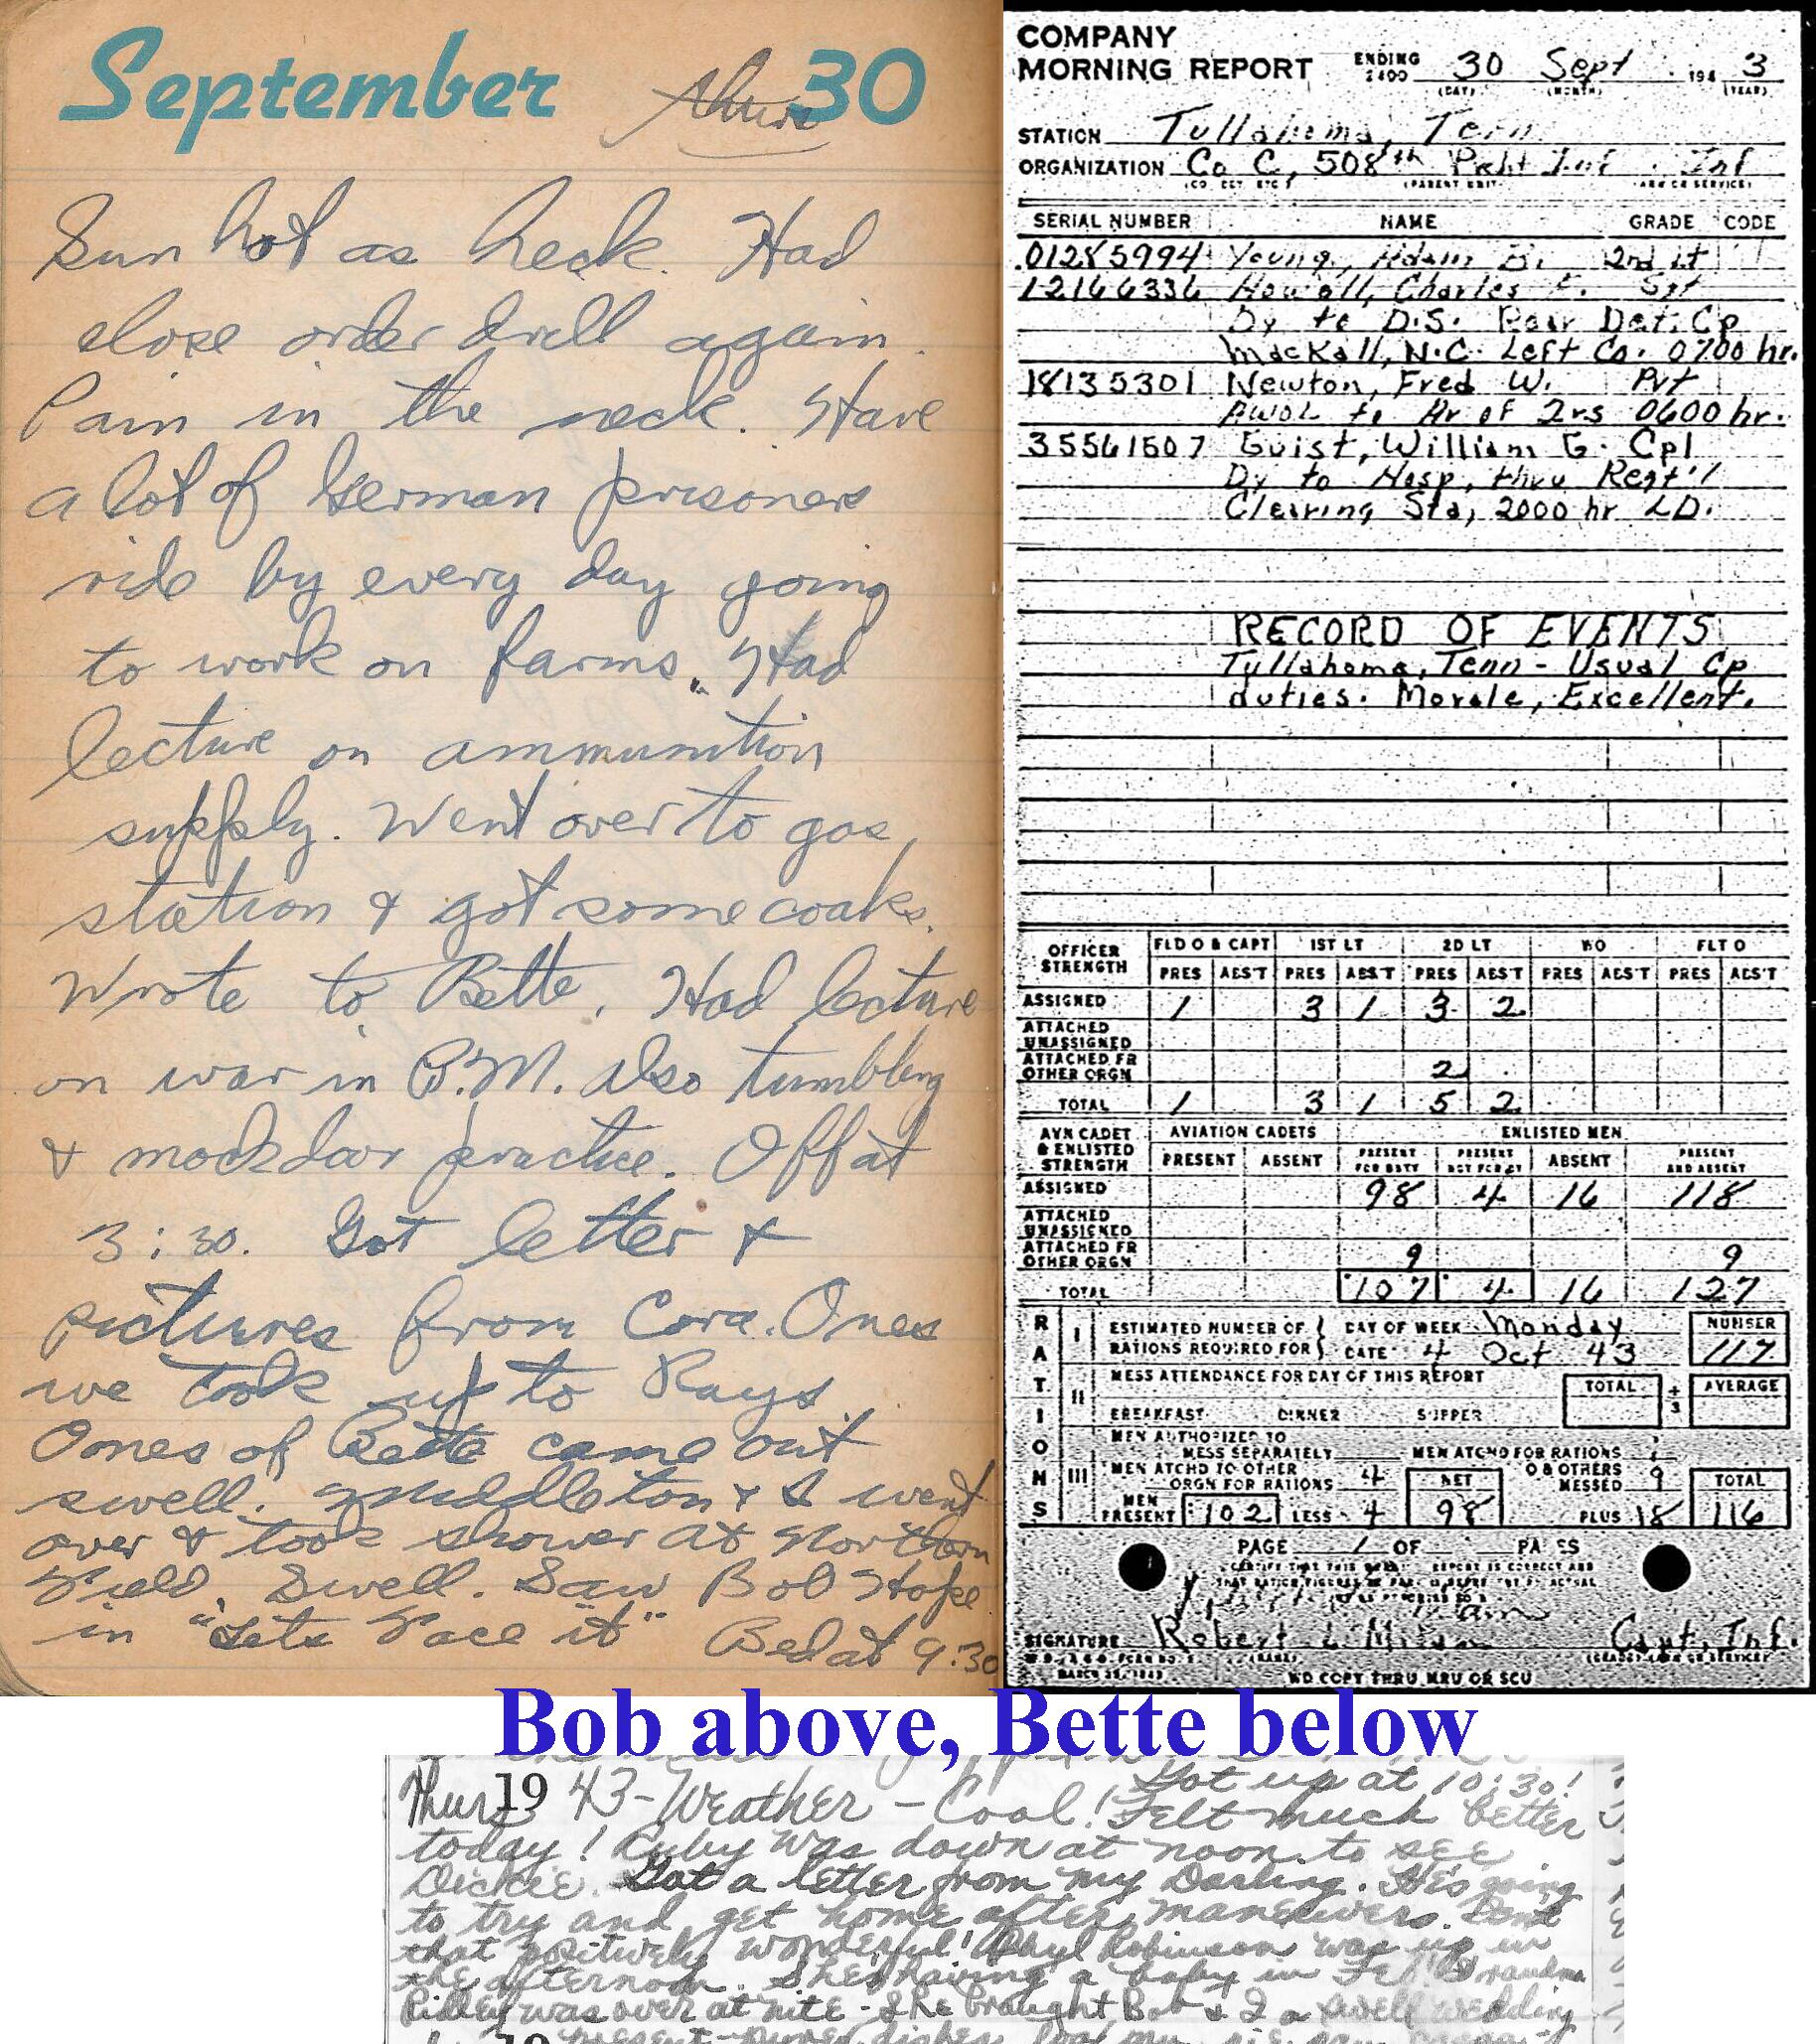 September 30
Thurs
Sun hot as heck. Had
close order drill again.
Pain in the neck. Have
a lot of German prisoners
ride by every day going
to work on farms. Had
lecture on ammunition
supply. Went over to gas
station & got some coaks.
Wrote to Bette. Had lecture
on war in B.M. also tumbling
& mockdoor practice. Off at
3:30. Got letter &
pictures from Cora. Ones
we took up to Rays.
Ones of Bette came out
swell. Middleton & I went
over & took shower at Northern
Field. Swell. Saw Bob Hope
in "Lets Face it" Bed at 9:30
COMPANY
MORNING REPORT ENDING 2400 30 Sept 194 3
(DAY) (MONTH) (YEAR)
STATION Tullahoma, Tenn
ORGANIZATION Co C, 508th Prcht Inf Inf
(PARENT UNIT) (ARM OR SERVICE)
SERIAL NUMBER NAME GRADE CODE
01285994 Young, Adam B. 2nd Lt
12166336 Howall, Charles F. Sgt
Dy to D.S. Rear Det. Cp
Mackall, N.C. Left Co. 0700 hr.
18135301 Newton, Fred W. Pvt
AWOL to Ar of Qrs 0600 hr.
35561507 Guist, William G. Cpl
Dy to Hosp, thru Regt'l
Clearing Sta, 2000 hr LD.
RECORD OF EVENTS
Tullahoma, Tenn - Usual Cp
duties. Morale, Excellent.
OFFICER STRENGTH FLD O & CAPT 1ST LT 2D LT WO FLT O
PRES ABS'T PRES ABS'T PRES ABS'T PRES ABS'T PRES ABS'T
ASSIGNED 1 3 1 3 2
ATTACHED UNASSIGNED
ATTACHED FR OTHER ORGN 2
TOTAL 1 3 1 5 2
AVN CADET & ENLISTED STRENGTH AVIATION CADETS ENLISTED MEN
PRESENT ABSENT PRESENT FOR DUTY PRESENT NOT FOR DY ABSENT PRESENT AND ABSENT
ASSIGNED 98 4 16 118
ATTACHED UNASSIGNED
ATTACHED FR OTHER ORGN 9 9
TOTAL 107 4 16 127
RATIONS
I ESTIMATED NUMBER OF RATIONS REQUIRED FOR DAY OF WEEK Monday NUMBER
DATE 4 Oct 43 117
II MESS ATTENDANCE FOR DAY OF THIS REPORT TOTAL ÷ 3 AVERAGE
BREAKFAST DINNER SUPPER
III MEN AUTHORIZED TO MESS SEPARATELY MEN ATCHD FOR RATIONS
MEN ATCHD TO OTHER ORGN FOR RATIONS 4 NET O & OTHERS MESSED 9 TOTAL
MEN PRESENT 102 LESS 4 98 PLUS 18 116
PAGE 1 OF PAGES
SIGNATURE Robert L Milam Capt, Inf.
WD COPY THRU MRU OR SCU
Bob above, Bette below
Got up at 10:30!
Thurs 19 43 - Weather - Cool! Felt much better
today! Ruby was down at noon to see
Dickie. Got a letter from my Darling. He's going
to try and get home after maneuvers. Isn't
that positively wonderful! Phyl Robinson was up in
the afternoon. She's having a baby in Feb. Grandma
Ridley was over at nite - She brought Bob & I a swell wedding
present - dishes